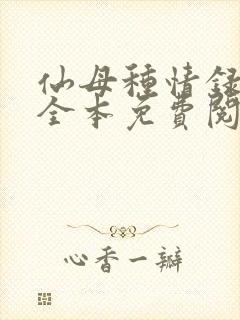 仙母種情録
全本免費閱
心香一瓣